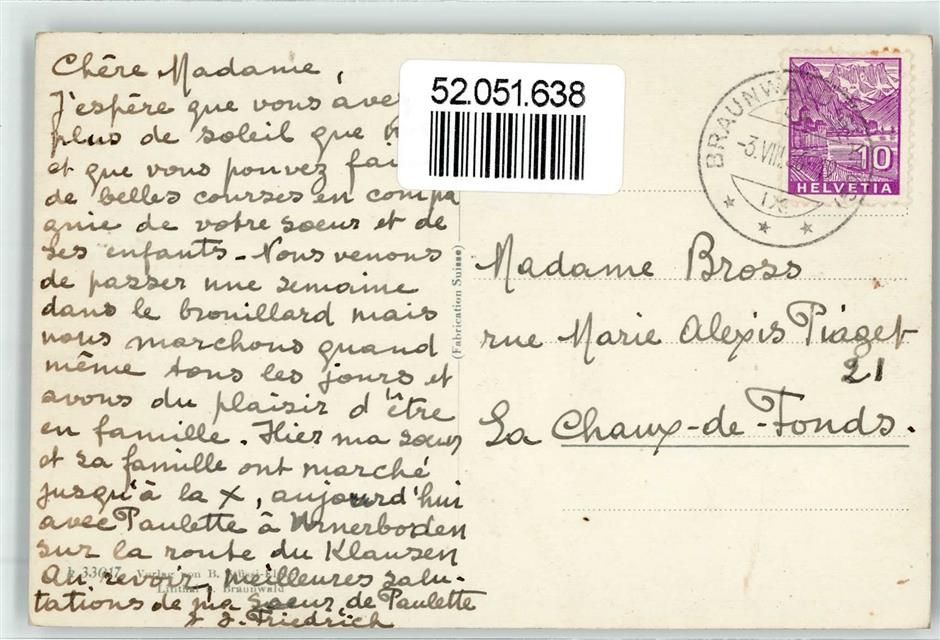 Chère Madame,
J'espère que vous ave
plus de soleil que
et que vous pouvez fai
de belles courses en compa
gnie de votre soeur et de
ses enfants - Nous venons
de passer une semaine
dans le brouillard mais
nous marchons quand
même tous les jours et
avons du plaisir d'être
en famille. Hier ma soeur
et sa famille ont marché
jusqu'à la X, aujourd'hui
avec Paulette à Urnerboden
sur la route du Klausen
Au revoir, meilleures salu-
tations de ma soeur, de Paulette
Friedrich
33047 Verlag von B.
Linthal Braunwald
(Fabrication Suisse)
52.051.638
BRAUNWA
-3.VIII.
10
HELVETIA
Madame Bross
rue Marie Alexis Piaget
21
La Chaux-de-Fonds.